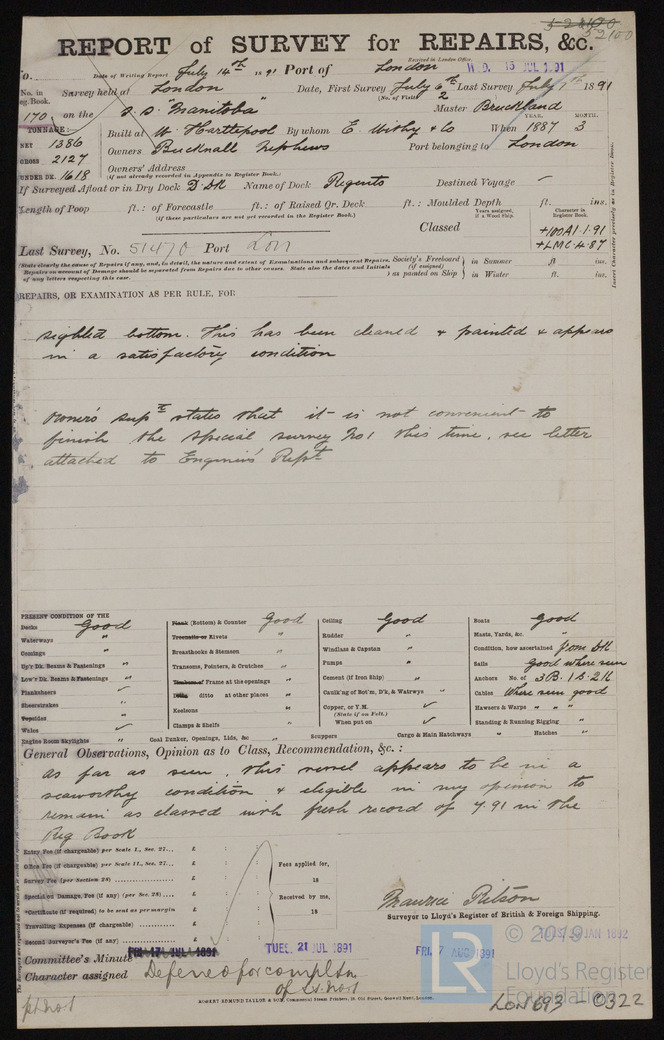 52100
52100
REPORT of SURVEY for REPAIRS, &c.
Received in London Office,
o. Date of Writing Report July 14th 1891 Port of London W.D. 15 JUL 1.91
No. in Reg. Book. Survey held at London Date, First Survey July 6th Last Survey July 7th 1891
(No. of Visits 2
170 on the S.S. "Manitoba" Master Bruckland
TONNAGE: YEAR. MONTH.
NET 1386 Built at W. Hartlepool By whom E. Withy & Co When 1887 3
GROSS 2127 Owners Bucknall Nephews Port belonging to London
UNDER DK. 1618 Owners' Address
(If not already recorded in Appendix to Register Book.)
If Surveyed Afloat or in Dry Dock D DK Name of Dock Regents Destined Voyage
Length of Poop ft.: of Forecastle ft.: of Raised Qr. Deck ft.: Moulded Depth ft. ins.
(If these particulars are not yet recorded in the Register Book.)
Years assigned, if a Wood Ship. Character in Register Book.
Classed +100A1.1.91
+LMC 4.87
Insert Character precisely as in Register Book.
Last Survey, No. 51470 Port Lon
(State clearly the cause of Repairs if any, and, in detail, the nature and extent of Examinations and subsequent Repairs. Society's Freeboard in Summer ft ins.
Repairs on account of Damage should be separated from Repairs due to other causes. State also the dates and Initials (if assigned)
of any letters respecting this case. as painted on Ship in Winter ft. ins.
REPAIRS, OR EXAMINATION AS PER RULE, FOR
sighted bottom. This has been cleaned & painted & appears
in a satisfactory condition
Owner's supt states that it is not convenient to
finish the special survey No 1 this time, see letter
attached to Engineers' Rept
PRESENT CONDITION OF THE
Decks Good Plank (Bottom) & Counter Good Ceiling Good Boats Good
Waterways " Treenails or Rivets " Rudder " Masts, Yards, &c. "
Comings " Breasthooks & Stemson " Windlass & Capstan " Condition, how ascertained from DK
Up'r Dk. Beams & Fastenings " Transoms, Pointers, & Crutches " Pumps " Sails good where seen
Low'r Dk. Beams & Fastenings " Timbers of Frame at the openings " Cement (if Iron Ship) " Anchors No. of 3B. 1S. 2K
Planksheers Ditto ditto at other places " Caulk'ng of Bot'm, D'k, & Watrwys " Cables Where seen good
Sheerstrakes " Keelsons " Copper, or Y.M. Hawsers & Warps " " "
(State if on Felt.)
Topsides Clamps & Shelfs " When put on Standing & Running Rigging "
Wales
Engine Room Skylights " Coal Bunker, Openings, Lids, &c " Scuppers " Cargo & Main Hatchways " Hatches "
General Observations, Opinion as to Class, Recommendation, &c. :
As far as seen, this vessel appears to be in a
seaworthy condition & eligible in my opinion to
remain as classed with fresh record of 7.91 in the
Reg Book
Entry Fee (if chargeable) per Scale I., Sec. 27... £ : :
Office Fee (if chargeable) per Scale II., Sec. 27... £ : : Fees applied for,
Survey Fee (per Section 28) £ : : 18
Special on Damage, Fee (if any) (per Sec. 28) £ : : Received by me,
*Certificate (if required) to be sent as per margin
Travelling Expenses (if chargeable) £ : : 18
Second Surveyor's Fee (if any) £ : :
Maurice Pilson
Surveyor to Lloyd's Register of British & Foreign Shipping.
Committee's Minute FRI. 17 JUL 1891 TUES. 21 JUL 1891 FRI. 7 AUG 1891 JAN 1892
Character assigned Deferred for compltn
of S.S. No 1
ROBERT EDMUND TAYLOR & SON, Commercial Steam Printers, 19, Old Street, Goswell Road, London.
© 2019
LR
Lloyd's Register
Foundation
LON 693 - 0322